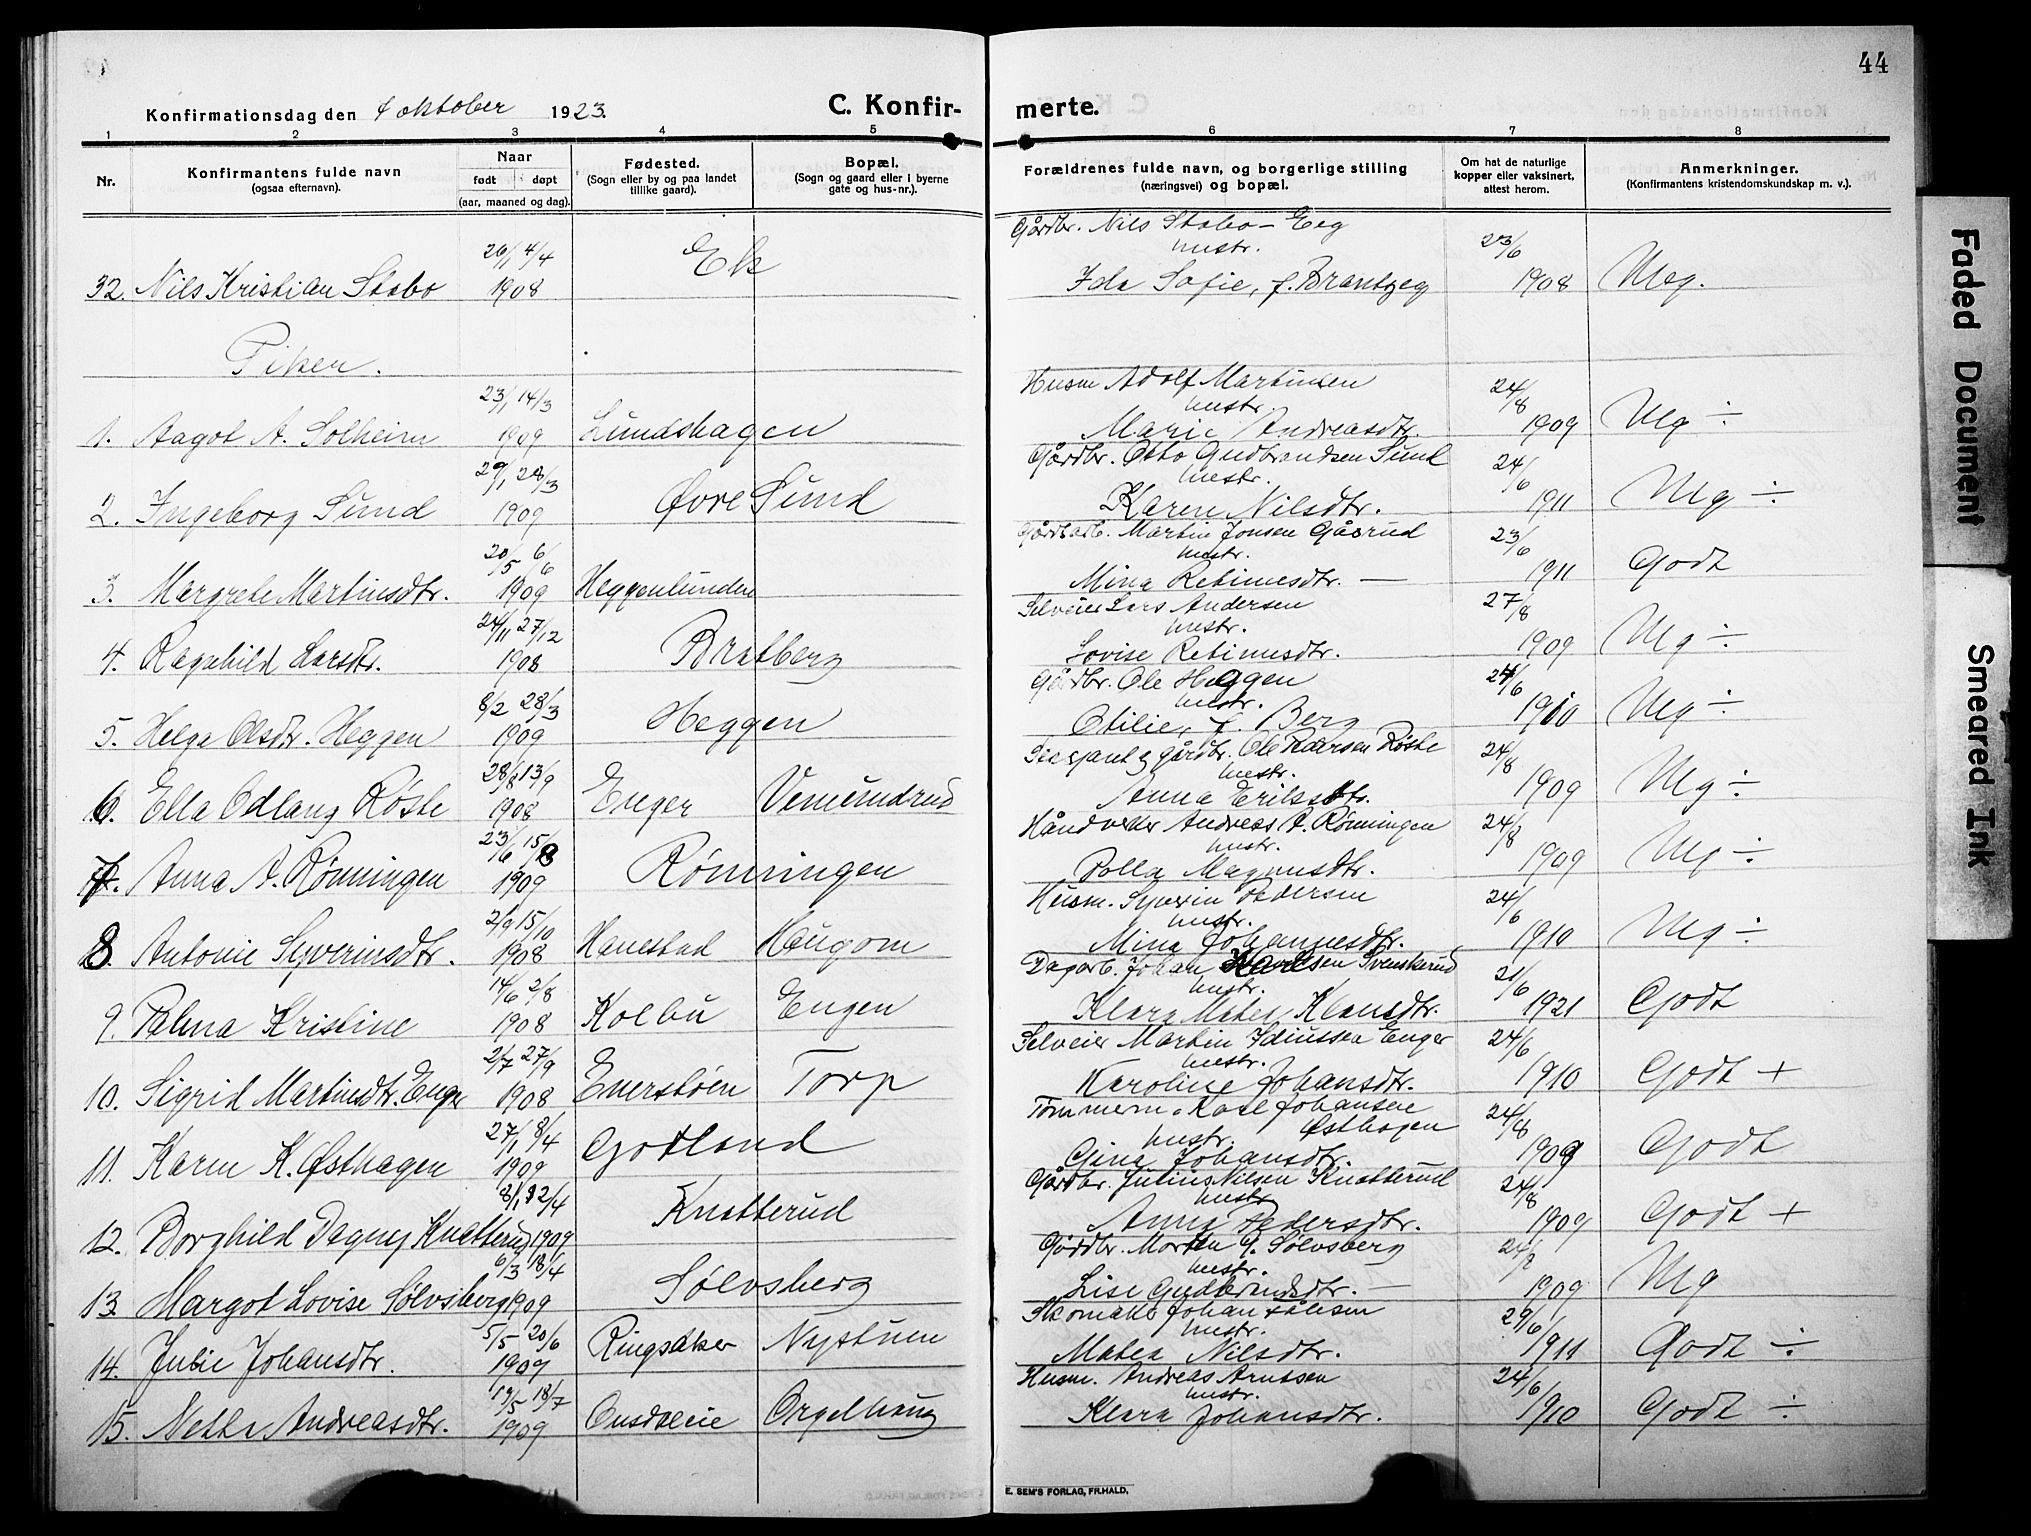 44
Konfirmationsdag den 4 oktober 1923.
C. Konfir-
merte.
1 2 3 4 5 6 7 8
Nr.
Konfirmantens fulde navn
(ogsaa efternavn).
Naar
født døpt
(aar, maaned og dag).
Fødested.
(Sogn eller by og paa landet
tillike gaard).
Bopæl.
(Sogn og gaard eller i byerne
gate og hus-nr.).
Forældrenes fulde navn, og borgerlige stilling
(næringsvei) og bopæl.
Om hat de naturlige
kopper eller vaksinert,
attest herom.
Anmerkninger.
(Konfirmantens kristendomskundskap m. v.).
20/1 4/4 Gårdbr. Nils Stabo - Eeg 23/6
hustr.
32. Nils Kristian Stabo 1908 Ek Ida Sofie, f. Brantzeg 1908 Meg.
Piker.
23/1 14/3 Husm Adolf Martinsen 24/8
hustr.
1. Aagot A. Solheim 1909 Lundshagen Marie Andreasdtr. 1909 Mg ÷
29/1 28/3 Gårdbr. Otto Gudbrandsen Sund 24/6
hustr.
2. Ingeborg Sund 1909 Øvre Sund Karen Nilsdtr. 1911 Mg ÷
20/5 6/6 Gårdbarb. Martin Jonsen Gåsrud 23/6
hustr.
3. Margrete Martinsdtr. 1909 Heggenlunden Mina Retinusdtr. — 1911 Godt
24/11 27/12 Selveier Lars Andersen 27/8
hustr.
4. Ragnhild Larsdtr. 1908 Bratberg Lovise Retinusdtr. 1909 Mg ÷
8/2 28/3 Gårdbr. Ole Heggen 24/6
hustr.
5. Helga Olsdtr. Heggen 1909 Heggen Otilie, f. Berg 1910 Mg ÷
28/8 13/9 gårdbr. Ole Pedersen Røste 24/8
hustr.
6. Ella Odlaug Røste 1908 Enger Vemundrud Anna Eriksdtr. 1909 Mg ÷
23/6 15/8 Håndverker Andreas A. Rønningen 24/8
hustr.
7. Anna A. Rønningen 1909 Rønningen Polla Magnusdtr. 1909 Mg ÷
2/9 15/10 Husm. Syverin Pedersen 24/6
hustr.
8. Antonie Syverinsdtr. 1908 Hanestad Haugom Mina Johannesdtr. 1910 Mg ÷
14/6 2/8 Dagarb. Johan Karlsen Svenskerud 21/6
hustr.
9. Palma Kristine 1908 Kolbu Engen Klara Matea Klausdtr. 1921 Godt
2/7 27/9 Selveier Martin Idiussen Enger 24/6
hustr.
10. Sigrid Martinsdtr. Enger 1908 Enerstøen Torp Karoline Johansdtr. 1910 Godt +
27/1 8/4 Tømmerm. Karl Johansen 24/8
hustr. Østhagen
11. Karen K. Østhagen 1909 Godland Gina Johansdtr. 1909 Godt
8/1 12/4 Gårdbr. Julius Nilsen Knatterud 24/8
hustr.
12. Borghild Dagny Knatterud 1909 Knatterud Anna Pedersdtr. 1909 Godt +
6/3 18/4 Gårdbr. Morten G. Sølvsberg
hustr.
13. Margot Lovise Sølvsberg 1909 Sølvsberg Lise Gudbrandsdtr. — 1909 Mg
5/5 20/6 Skomaker Johan 29/6
hustr.
14. Julie Johansdtr. 1909 Ringsaker Nystuen Matea Nilsdtr. 1911 Godt ÷
19/5 18/7 Husm. Andreas Arnesen 24/6
hustr.
15. Netta Andreasdtr. 1909 Onsdaleie Orgelhaug Klara Johansdtr. 1910 Godt ÷
E. SEM'S FORLAG, FR.HALD.
Faded Document
Smeared Ink